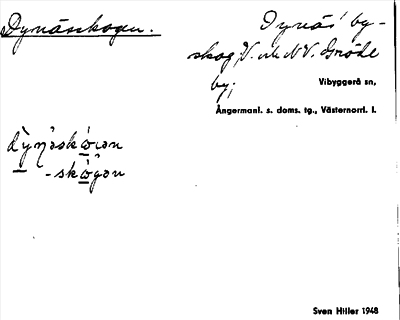 Dynäskogen.
Dynäs' by-
skog, V. och NV. Gnöhl
by;
Vibyggerå sn,
Ångermanl. s. doms. tg., Västernorrl. l.
dynäskoɡan
-skogan
Sven Hitler 1948